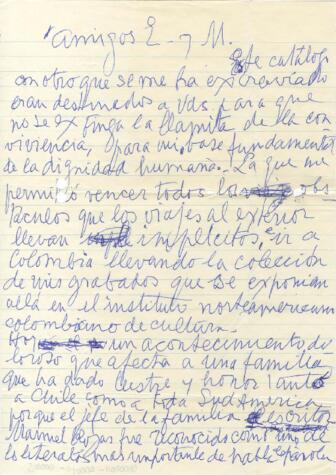 Amigos E. y M.
Este catálogo
con otro que se me ha extraviado
eran destinados a Vds para que
no se extinga la llamita de la con
vivencia, para mi base fundamental
de la dignidad humana. La que me
permitió vencer todos los obs
táculos que los viajes al exterior
llevan implícitos, e ir a
Colombia llevando la colección
de mis grabados que se exponían
allá en el instituto norteamericano
colombiano de cultura.
Hoy un acontecimiento do
loroso que afecta a una familia
que ha dado lustre y honor tanto
a Chile como a toda Sud America
porque el jefe de la familia
Manuel Rojas fue reconocido como uno de
los literatos mas importante de habla española